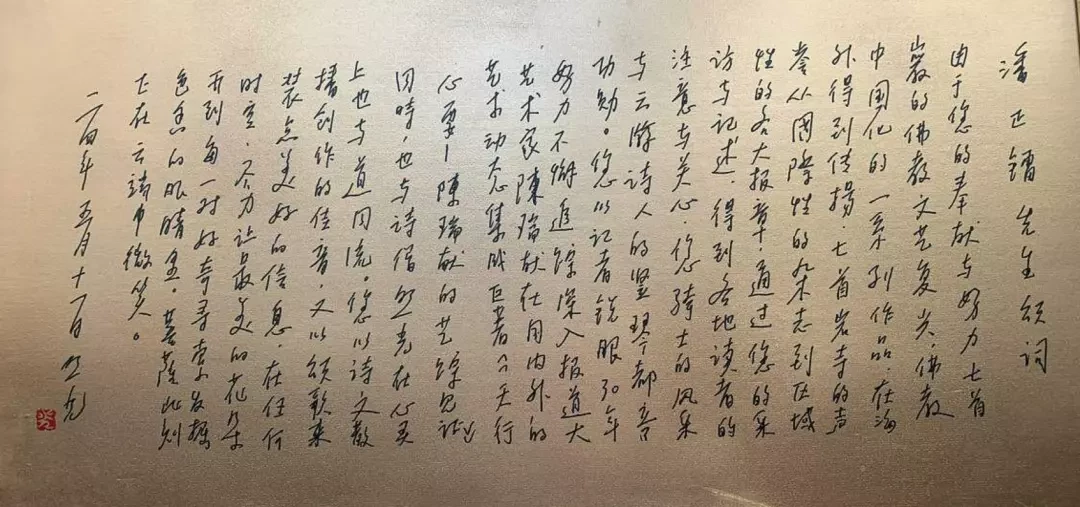 潘正镭先生颂词
由于您的奉献与努力七首
巖的佛教文艺复兴，佛教
中国化的一系列作品，在海
外得到传揚。七首岩寺的声
誉从國際性的杂志到区域
性的各大报章，通过您的采
访与记述，得到各地读者的
注意与关心。您骑士的风采
与云游诗人的竖琴都吝
功勋。您以记者锐眼30年
努力不懈追踪深入报道大
艺术家陳瑞献在国内外的
艺术动态集成巨著《天行
心要－陳瑞献的艺踪见证》
同時，也与诗僧 在心灵
上也与道同流。您以诗文散
播创作的佳音，又以颂歌来
裝点美好的信息，在任何
时空，尽力让最美的花朵
开到每一对好奇寻索发掘
色色的眼睛里。菩萨此刻
正在云端中微笑。
二 年五月十一日